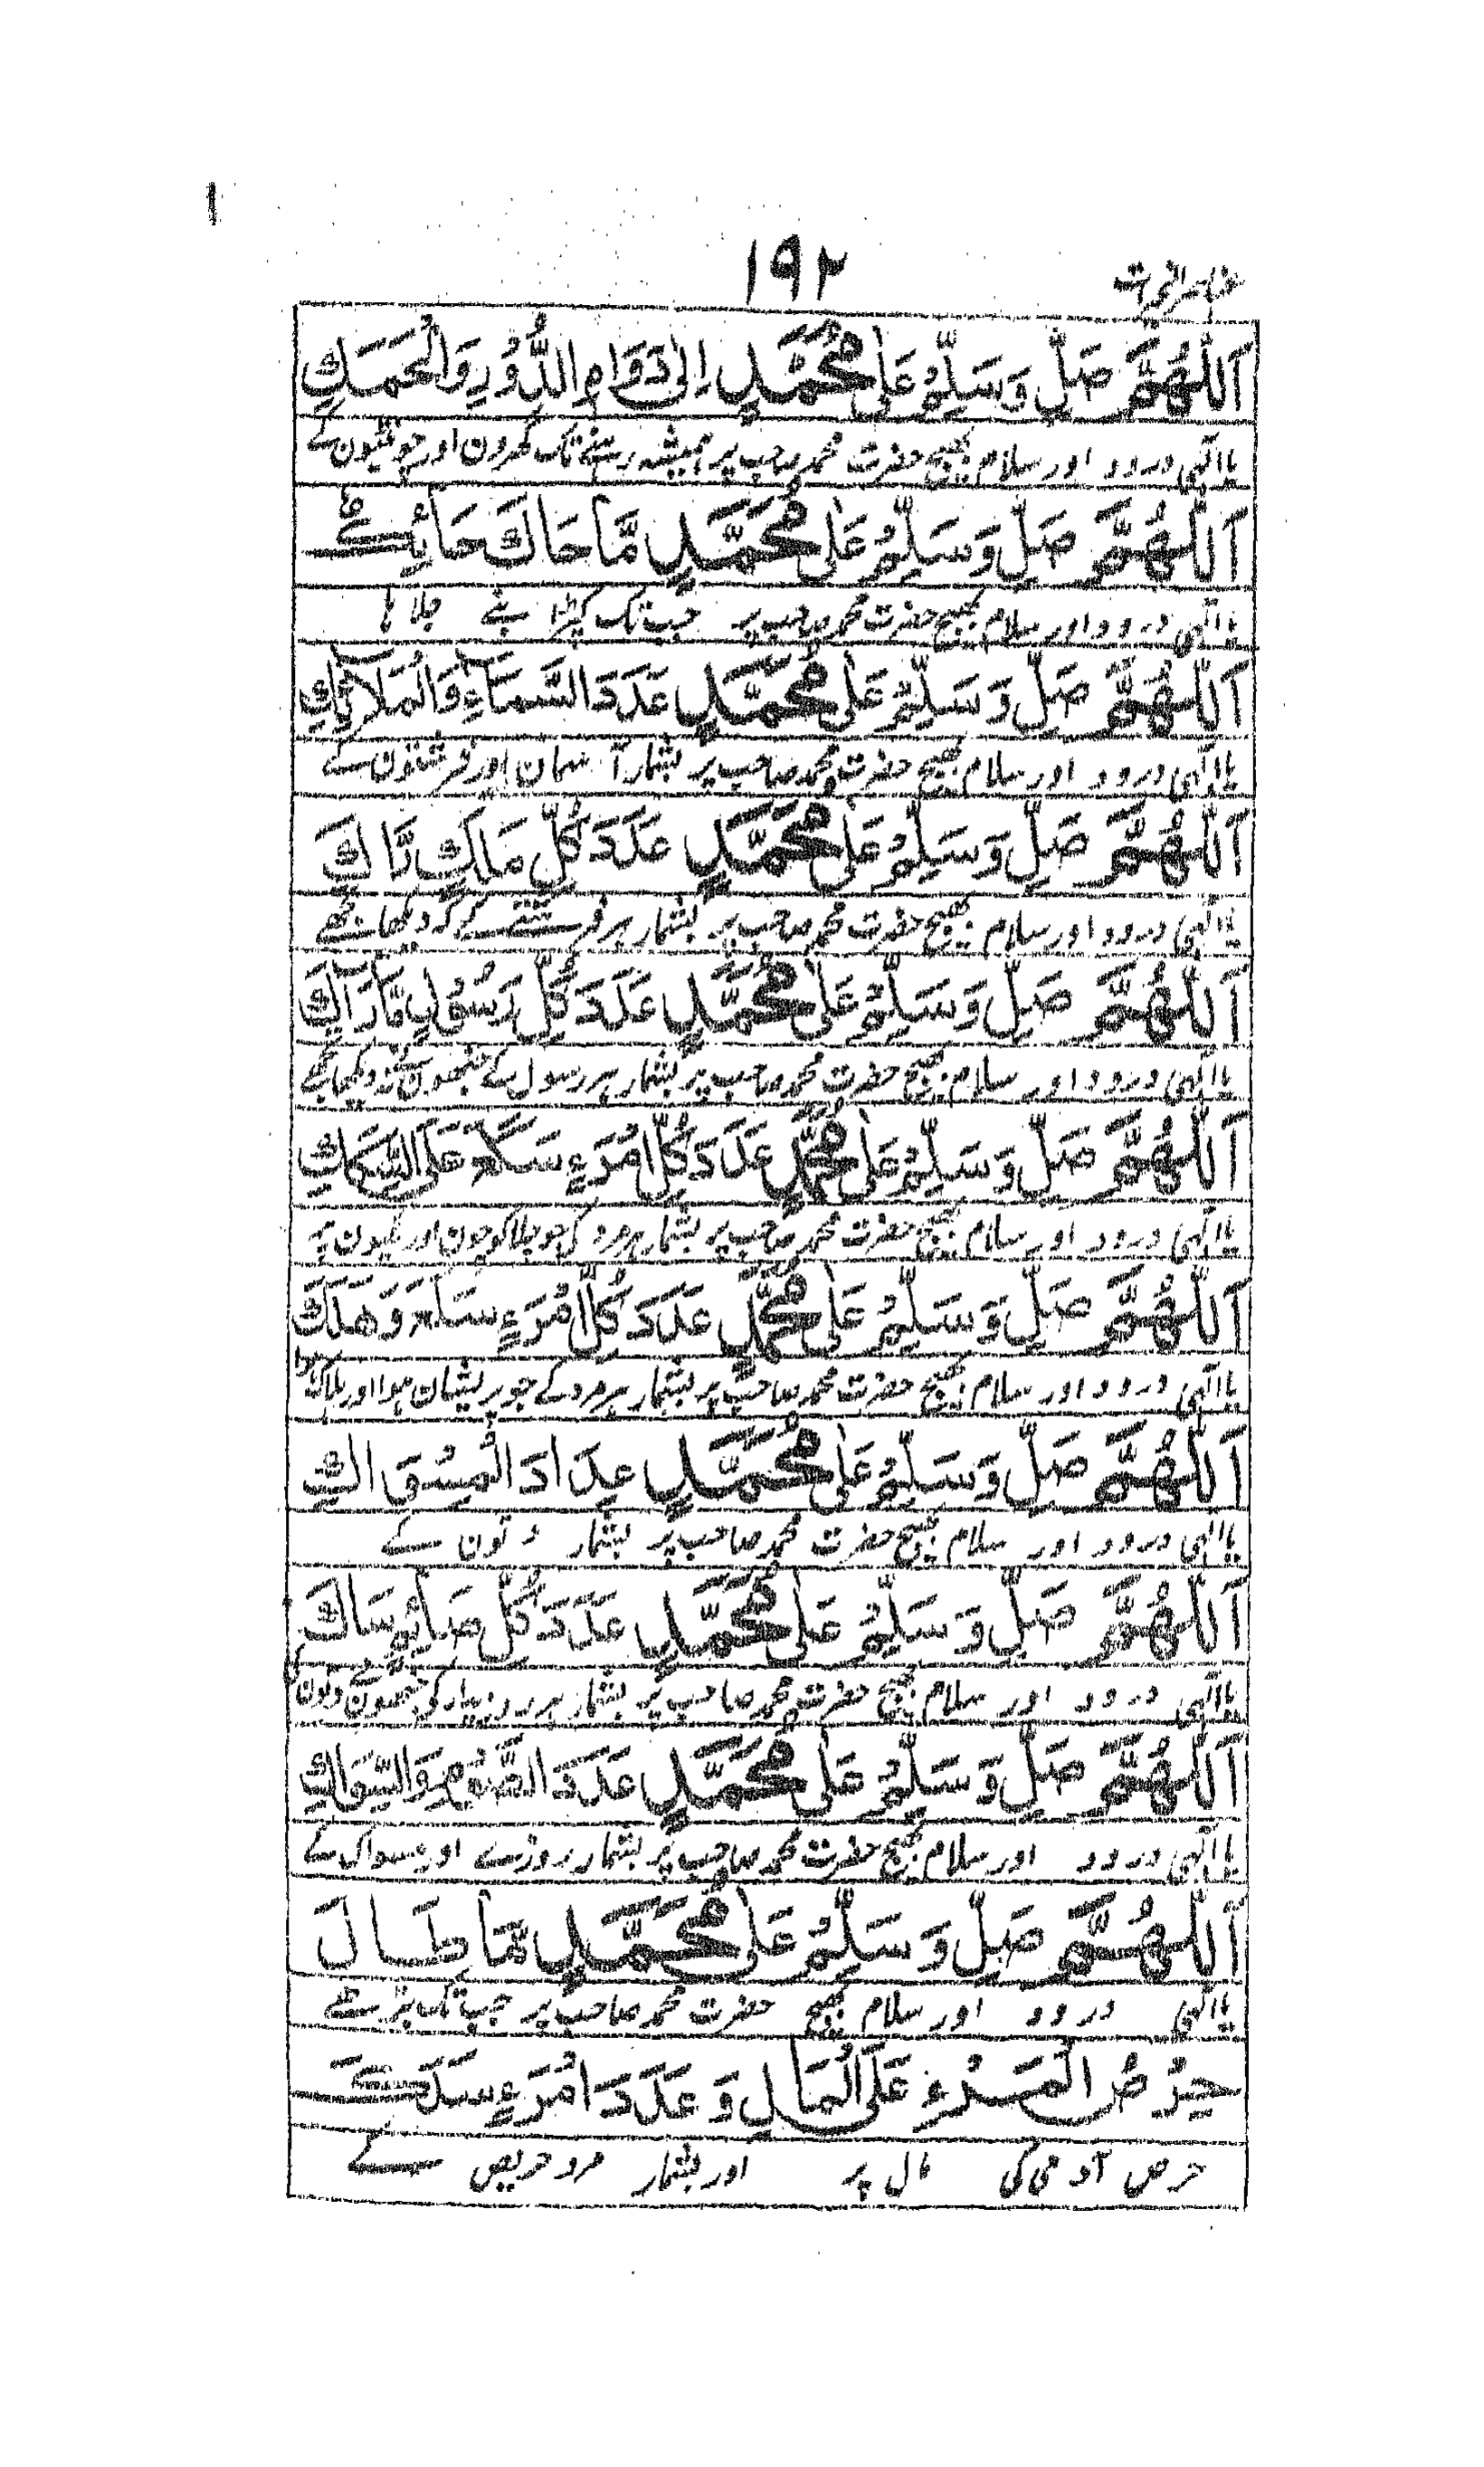 ۱۹۲
عناصر الخیرات
اَللّٰهُمَّ صَلِّ وَسَلِّمْ عَلٰی مُحَمَّدٍ اِلٰی دَوَامِ الدُّوْرِ وَالْحَمَكِ
یا الٰہی درود اور سلام بھیج حضرت محمد صاحب پر ہمیشہ رہنے تک گھرون اور چونٹیون کے
اَللّٰهُمَّ صَلِّ وَسَلِّمْ عَلٰی مُحَمَّدٍ مَّا حَاكَ حَائِكٌ
یا الٰہی درود اور سلام بھیج حضرت محمد صاحب پر جب تک کپڑا بنے جلاہا
اَللّٰهُمَّ صَلِّ وَسَلِّمْ عَلٰی مُحَمَّدٍ عَدَدَ السَّمَآءِ وَالْمَلَآئِكِ
یا الٰہی درود اور سلام بھیج حضرت محمد صاحب پر بشمار آسمان اور فرشتون کے
اَللّٰهُمَّ صَلِّ وَسَلِّمْ عَلٰی مُحَمَّدٍ عَدَدَ كُلِّ مَلَكٍ رَّاكَ
یا الٰہی درود اور سلام بھیج حضرت محمد صاحب پر بشمار ہر فرشتے کے کہ دیکھا تجھے
اَللّٰهُمَّ صَلِّ وَسَلِّمْ عَلٰی مُحَمَّدٍ عَدَدَ كُلِّ رَسُوْلٍ مَّا رَآكَ
یا الٰہی درود اور سلام بھیج حضرت محمد صاحب پر بشمار ہر رسول کے جنھون نے نہ دیکھا تجھے
اَللّٰهُمَّ صَلِّ وَسَلِّمْ عَلٰی مُحَمَّدٍ عَدَدَ كُلِّ امْرَءٍ سَلَكَ عَلَی السِّكَكِ
یا الٰہی درود اور سلام بھیج حضرت محمد صاحب پر بشمار ہر مرد کی جو چلا کوچون اور گلیون پر
اَللّٰهُمَّ صَلِّ وَسَلِّمْ عَلٰی مُحَمَّدٍ عَدَدَ كُلِّ امْرَءٍ سَدَمَ وَهَلَكَ
یا الٰہی درود اور سلام بھیج حضرت محمد صاحب پر بشمار ہر مرد کے جو پریشان ہوا اور ہلاک ہوا
اَللّٰهُمَّ صَلِّ وَسَلِّمْ عَلٰی مُحَمَّدٍ عِدَادَ الْمِسْوَاكِ
یا الٰہی درود اور سلام بھیج حضرت محمد صاحب پر بشمار دتون کے
اَللّٰهُمَّ صَلِّ وَسَلِّمْ عَلٰی مُحَمَّدٍ عَدَدَ كُلِّ صَائِمٍ سَاكَ
یا الٰہی درود اور سلام بھیج حضرت محمد صاحب پر بشمار ہر روزیدار کی جنھون نے دتون کی
اَللّٰهُمَّ صَلِّ وَسَلِّمْ عَلٰی مُحَمَّدٍ عَدَدَ الصَّوْمِ وَالسِّوَاكِ
یا الٰہی درود اور سلام بھیج حضرت محمد صاحب پر بشمار روزے اور مسواک کے
اَللّٰهُمَّ صَلِّ وَسَلِّمْ عَلٰی مُحَمَّدٍ مَّا طَالَ
یا الٰہی درود اور سلام بھیج حضرت محمد صاحب پر جب تک بڑھے
حِرْصُ الْمَرْءِ عَلَی الْمَالِ وَ عَدَدَ امْرَءٍ سَدَكَ
حرص آدمی کی مال پر اور بشمار مرد حریص کے